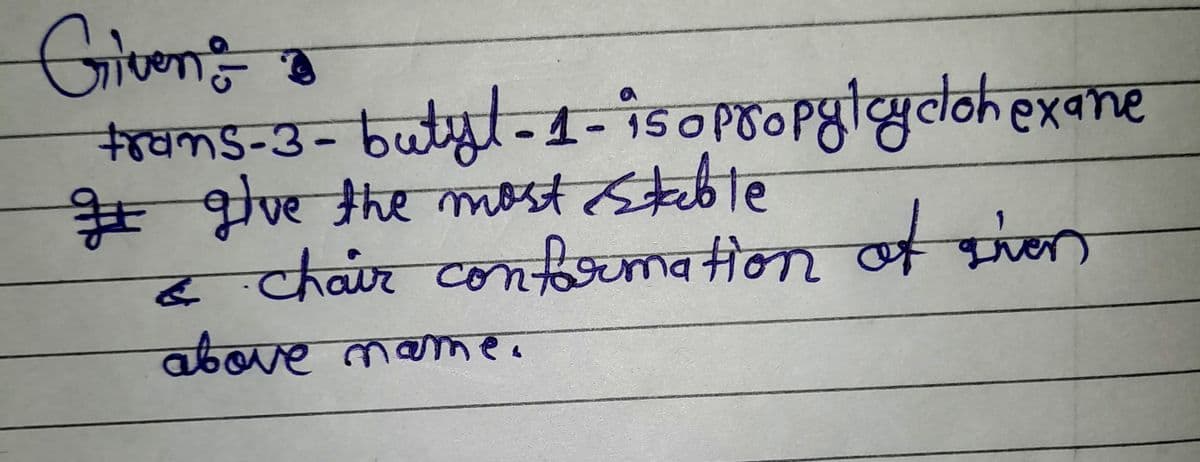 Given:-
trans-3-butyl-1-isopropylcyclohexane
give the most stable
chair conformation of given
above name.